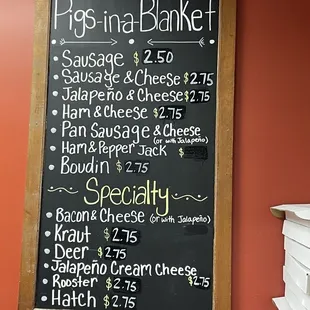 Pigs-in-a-Blanket
• Sausage $2.50
• Sausage & Cheese $2.75
• Jalapeño & Cheese $2.75
• Ham & Cheese $2.75
• Pan Sausage & Cheese
(or with Jalapeño)
• Ham & Pepper Jack $
• Boudin $2.75
Specialty
• Bacon & Cheese (or with Jalapeño)
• Kraut $2.75
• Deer $2.75
• Jalapeño Cream Cheese
• Rooster $2.75 $2.75
• Hatch $2.75